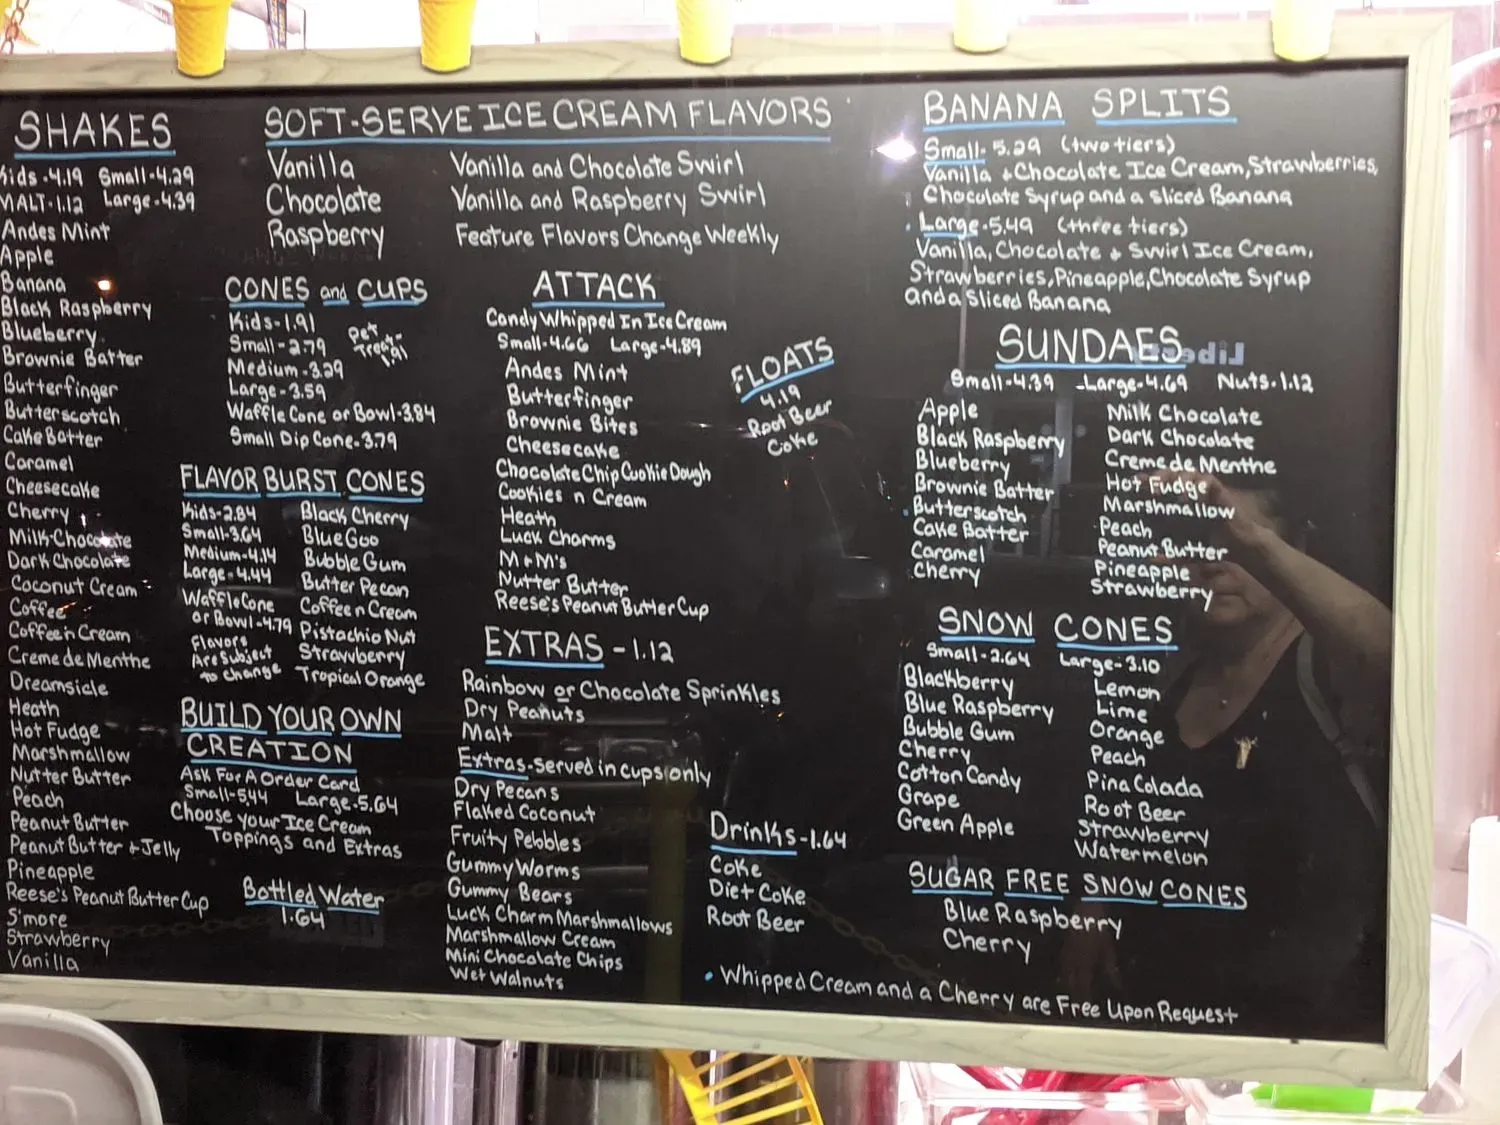 SHAKES
Kids-4.19 Small-4.29
MALT-1.12 Large-4.39
Andes Mint
Apple
Banana
Black Raspberry
Blueberry
Brownie Batter
Butterfinger
Butterscotch
Cake Batter
Caramel
Cheesecake
Cherry
Milk Chocolate
Dark Chocolate
Coconut Cream
Coffee
Coffee'n Cream
Creme de Menthe
Dreamsicle
Heath
Hot Fudge
Marshmallow
Nutter Butter
Peach
Peanut Butter
Peanut Butter + Jelly
Pineapple
Reese's Peanut Butter Cup
S'more
Strawberry
Vanilla
SOFT-SERVE ICE CREAM FLAVORS
Vanilla
Chocolate
Raspberry
Vanilla and Chocolate Swirl
Vanilla and Raspberry Swirl
Feature Flavors Change Weekly
CONES and CUPS
Kids-1.91
Small-2.79
Medium-3.29
Large-3.59
Waffle Cone or Bowl-3.84
Small Dip Cone-3.79
Pet
Treat-
1.91
FLAVOR BURST CONES
Kids-2.84
Small-3.64
Medium-4.14
Large-4.44
Waffle Cone
or Bowl-4.79
Flavors
Are Subject
to Change
Black Cherry
Blue Goo
Bubble Gum
Butter Pecan
Coffee n Cream
Pistachio Nut
Strawberry
Tropical Orange
BUILD YOUR OWN
CREATION
Ask For A Order Card
Small-5.44 Large-5.64
Choose your Ice Cream
Toppings and Extras
Bottled Water
1.64
ATTACK
Candy Whipped In Ice Cream
Small-4.66 Large-4.89
Andes Mint
Butterfinger
Brownie Bites
Cheesecake
Chocolate Chip Cookie Dough
Cookies n Cream
Heath
Luck Charms
M+M's
Nutter Butter
Reese's Peanut Butter Cup
FLOATS
4.19
Root Beer
Coke
EXTRAS-1.12
Rainbow or Chocolate Sprinkles
Dry Peanuts
Malt
Extras-Served in cups only
Dry Pecans
Flaked Coconut
Fruity Pebbles
Gummy Worms
Gummy Bears
Luck Charm Marshmallows
Marshmallow Cream
Mini Chocolate Chips
Wet Walnuts
Drinks-1.64
Coke
Diet Coke
Root Beer
BANANA SPLITS
Small-5.29 (two tiers)
Vanilla + Chocolate Ice Cream, Strawberries,
Chocolate Syrup and a Sliced Banana
Large-5.49 (three tiers)
Vanilla, Chocolate + Swirl Ice Cream,
Strawberries, Pineapple, Chocolate Syrup
and a Sliced Banana
SUNDAES
Small-4.39 -Large-4.69 Nuts-1.12
Apple
Black Raspberry
Blueberry
Brownie Batter
Butterscotch
Cake Batter
Caramel
Cherry
Milk Chocolate
Dark Chocolate
Creme de Menthe
Hot Fudge
Marshmallow
Peach
Peanut Butter
Pineapple
Strawberry
SNOW CONES
Small-2.64 Large-3.10
Blackberry
Blue Raspberry
Bubble Gum
Cherry
Cotton Candy
Grape
Green Apple
Lemon
Lime
Orange
Peach
Pina Colada
Root Beer
Strawberry
Watermelon
SUGAR FREE SNOW CONES
Blue Raspberry
Cherry
• Whipped Cream and a Cherry are Free Upon Request